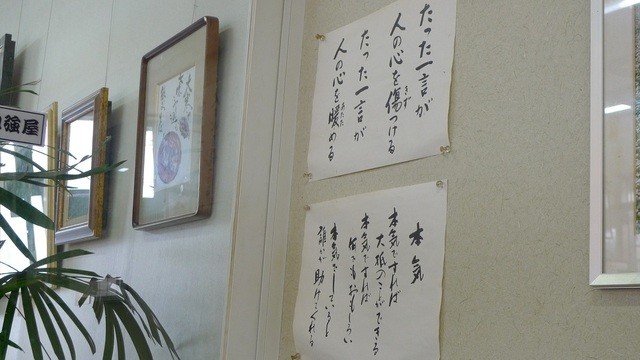 たった一言が
人の心を傷つける
きず
たった一言が
人の心を暖める
あたた
本気
本気ですれば
大抵のことができる
本気ですれば
何でもおもしろい
本気でしていると
誰かが助けてくれる
強屋